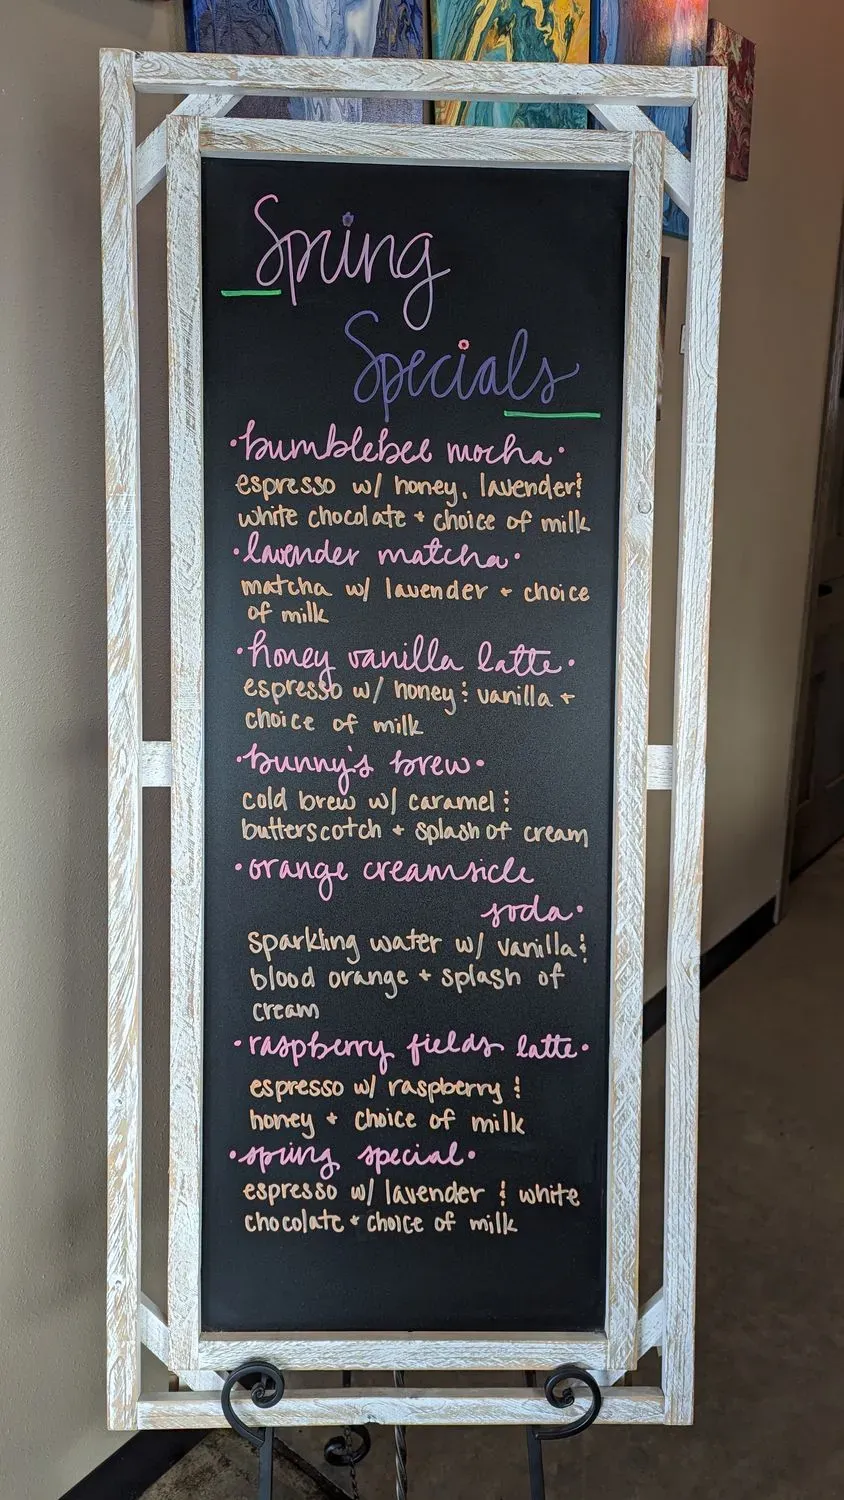 Spring
Specials
•bumblebee mocha•
espresso w/ honey, lavender &
white chocolate + choice of milk
•lavender matcha•
matcha w/ lavender + choice
of milk
•honey vanilla latte•
espresso w/ honey & vanilla +
choice of milk
•bunny's brew•
cold brew w/ caramel &
butterscotch + splash of cream
•orange creamsicle
soda•
sparkling water w/ vanilla &
blood orange + splash of
cream
•raspberry fields latte•
espresso w/ raspberry &
honey + choice of milk
•spring special•
espresso w/ lavender & white
chocolate + choice of milk